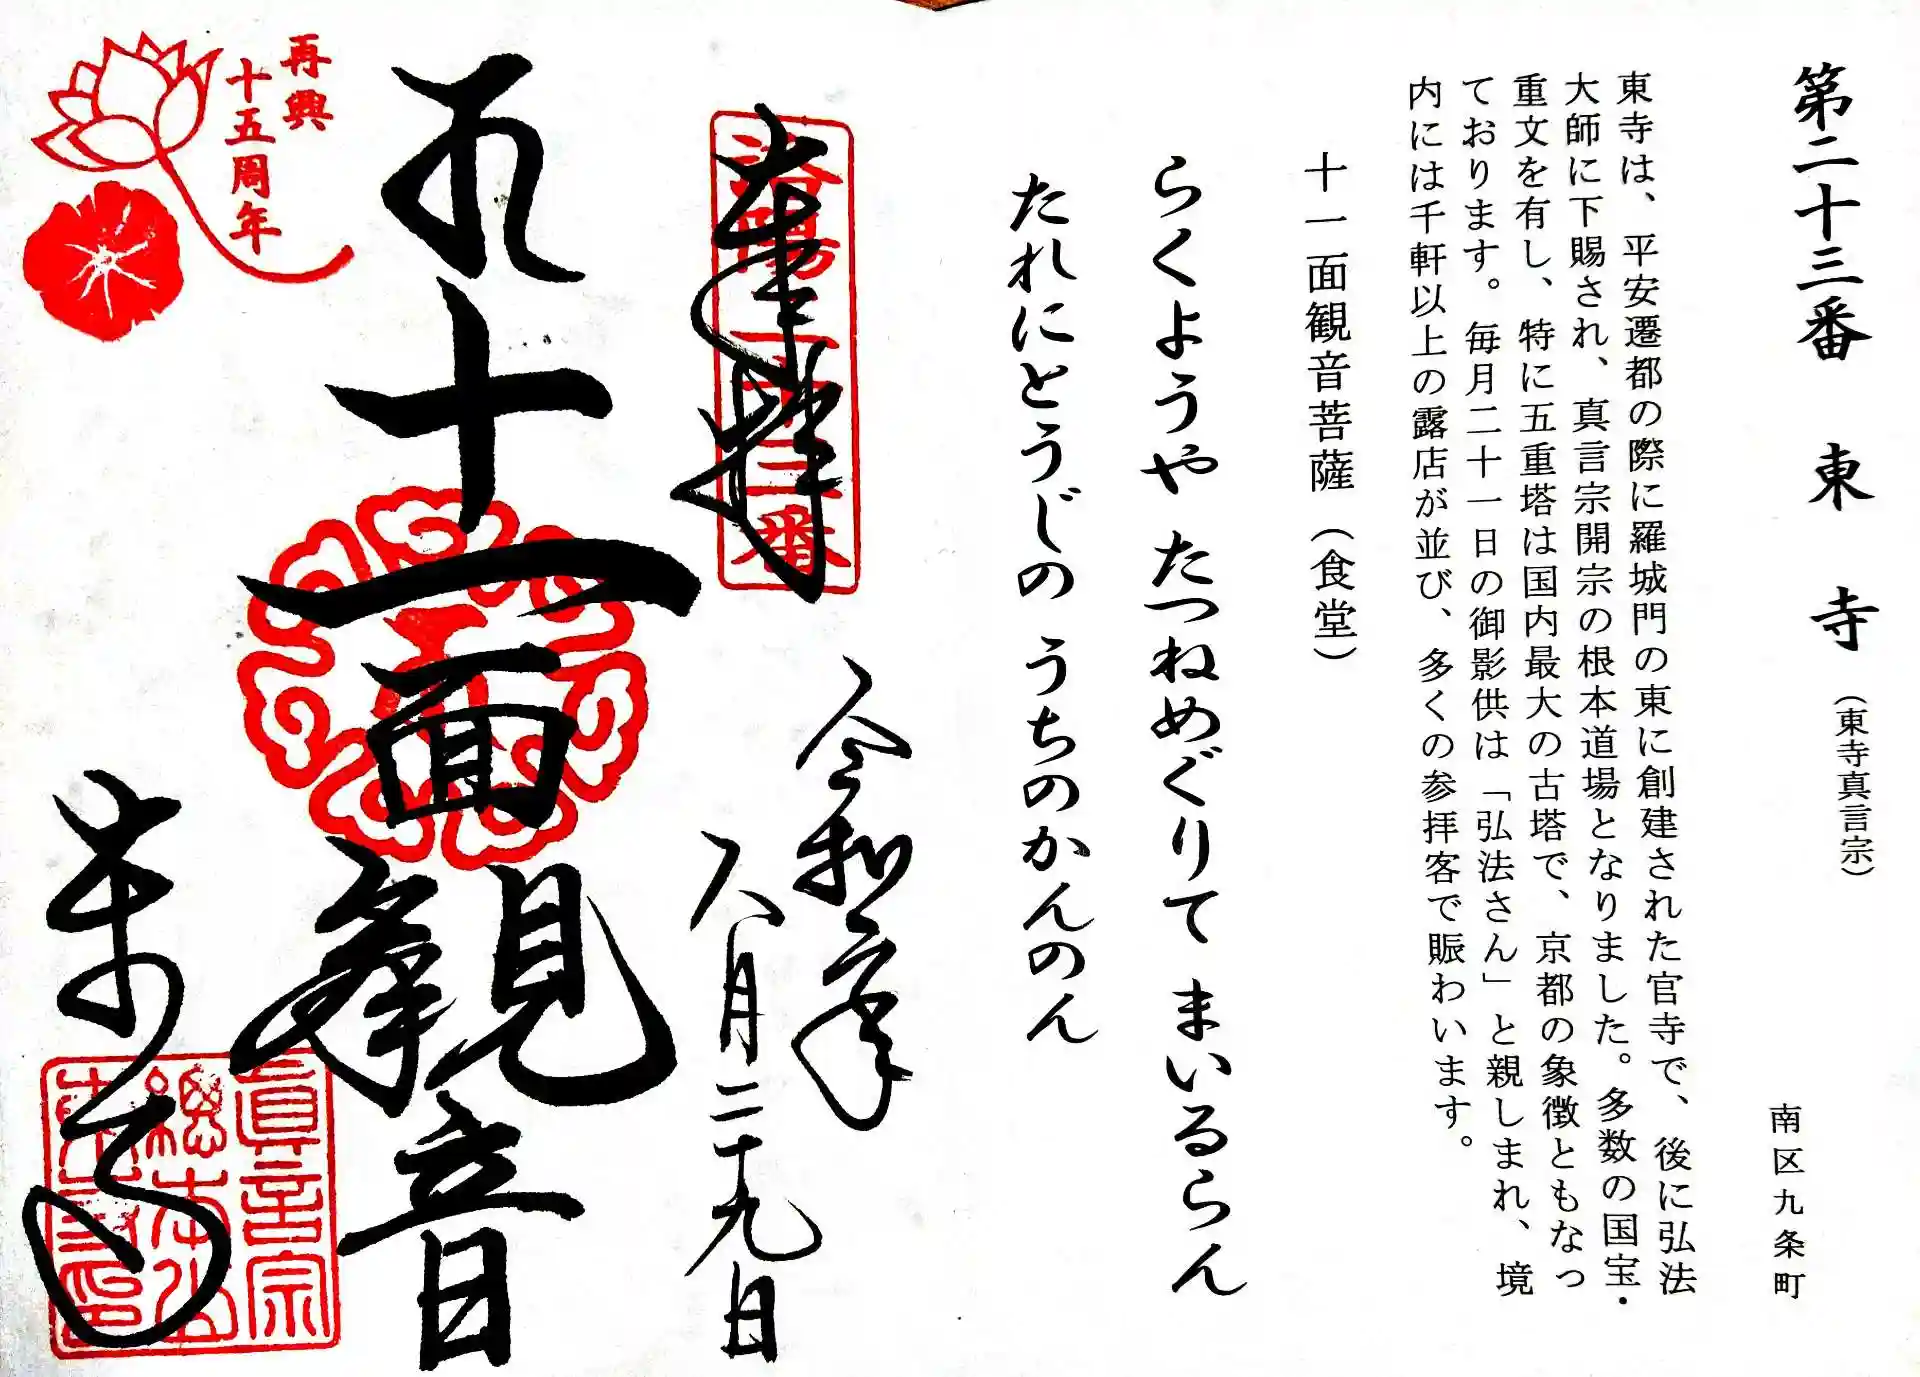 第二十三番 東寺（東寺真言宗）
南区九条町
東寺は、平安遷都の際に羅城門の東に創建された官寺で、後に弘法
大師に下賜され、真言宗開宗の根本道場となりました。多数の国宝・
重文を有し、特に五重塔は国内最大の古塔で、京都の象徴ともなっ
ております。毎月二十一日の御影供は「弘法さん」と親しまれ、境
内には千軒以上の露店が並び、多くの参拝客で賑わいます。
十一面観音菩薩（食堂）
らくようや たつねめぐりて まいるらん
たれにとうじの うちのかんのん
奉拝
洛陽二十三番
令和二年
八月二十九日
十一面観音
東寺
再興
十五周年
眞言宗
總本山
東寺印